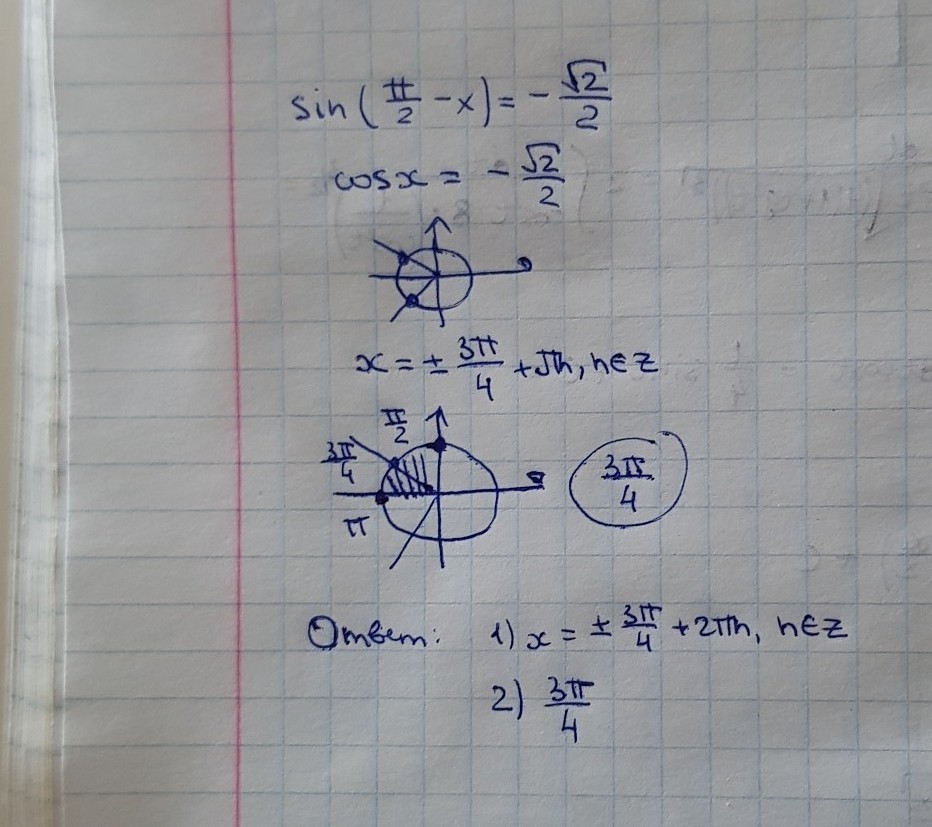 sin(π/2 -x)= -√2/2
cosx = -√2/2
x = ± 3π/4 + πn, n∈Z
π/2
3π/4
π
3π/4
Ответ: 1) x = ± 3π/4 + 2πn, n∈Z
2) 3π/4